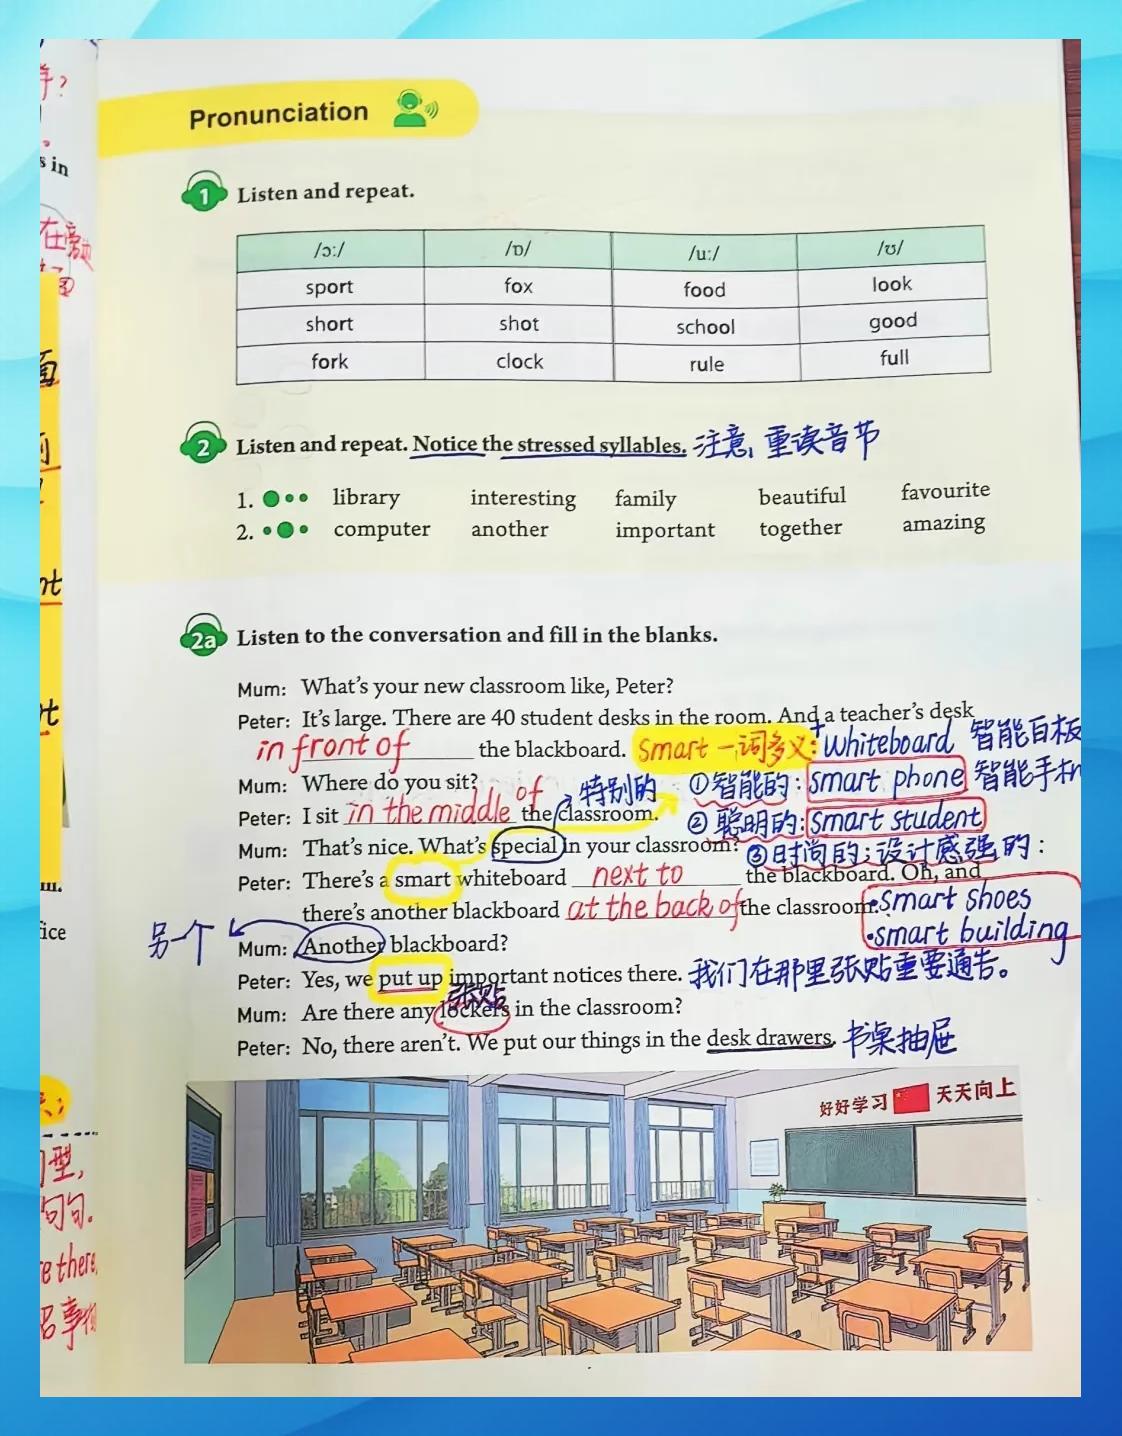 Pronunciation
1 Listen and repeat.
/ɔː/ /ɒ/ /uː/ /ʊ/
sport fox food look
short shot school good
fork clock rule full
2 Listen and repeat. Notice the stressed syllables. 注意, 重读音节
1. library interesting family beautiful favourite
2. computer another important together amazing
2a Listen to the conversation and fill in the blanks.
Mum: What's your new classroom like, Peter?
Peter: It's large. There are 40 student desks in the room. And a teacher's desk
in front of the blackboard. smart 一词多义: + whiteboard 智能白板
Mum: Where do you sit? of 特别的 ①智能的: smart phone 智能手机
Peter: I sit in the middle the classroom. ②聪明的: smart student
Mum: That's nice. What's special in your classroom? ③时尚的; 设计感强的:
Peter: There's a smart whiteboard next to the blackboard. Oh, and
there's another blackboard at the back of the classroom. •smart shoes
另一个 Mum: Another blackboard? •smart building
Peter: Yes, we put up important notices there. 我们在那里张贴重要通告。
张贴
Mum: Are there any lockers in the classroom?
Peter: No, there aren't. We put our things in the desk drawers. 书桌抽屉
好好学习 天天向上
s in
在旁边
面
nt
ice
型,
句句.
e there,